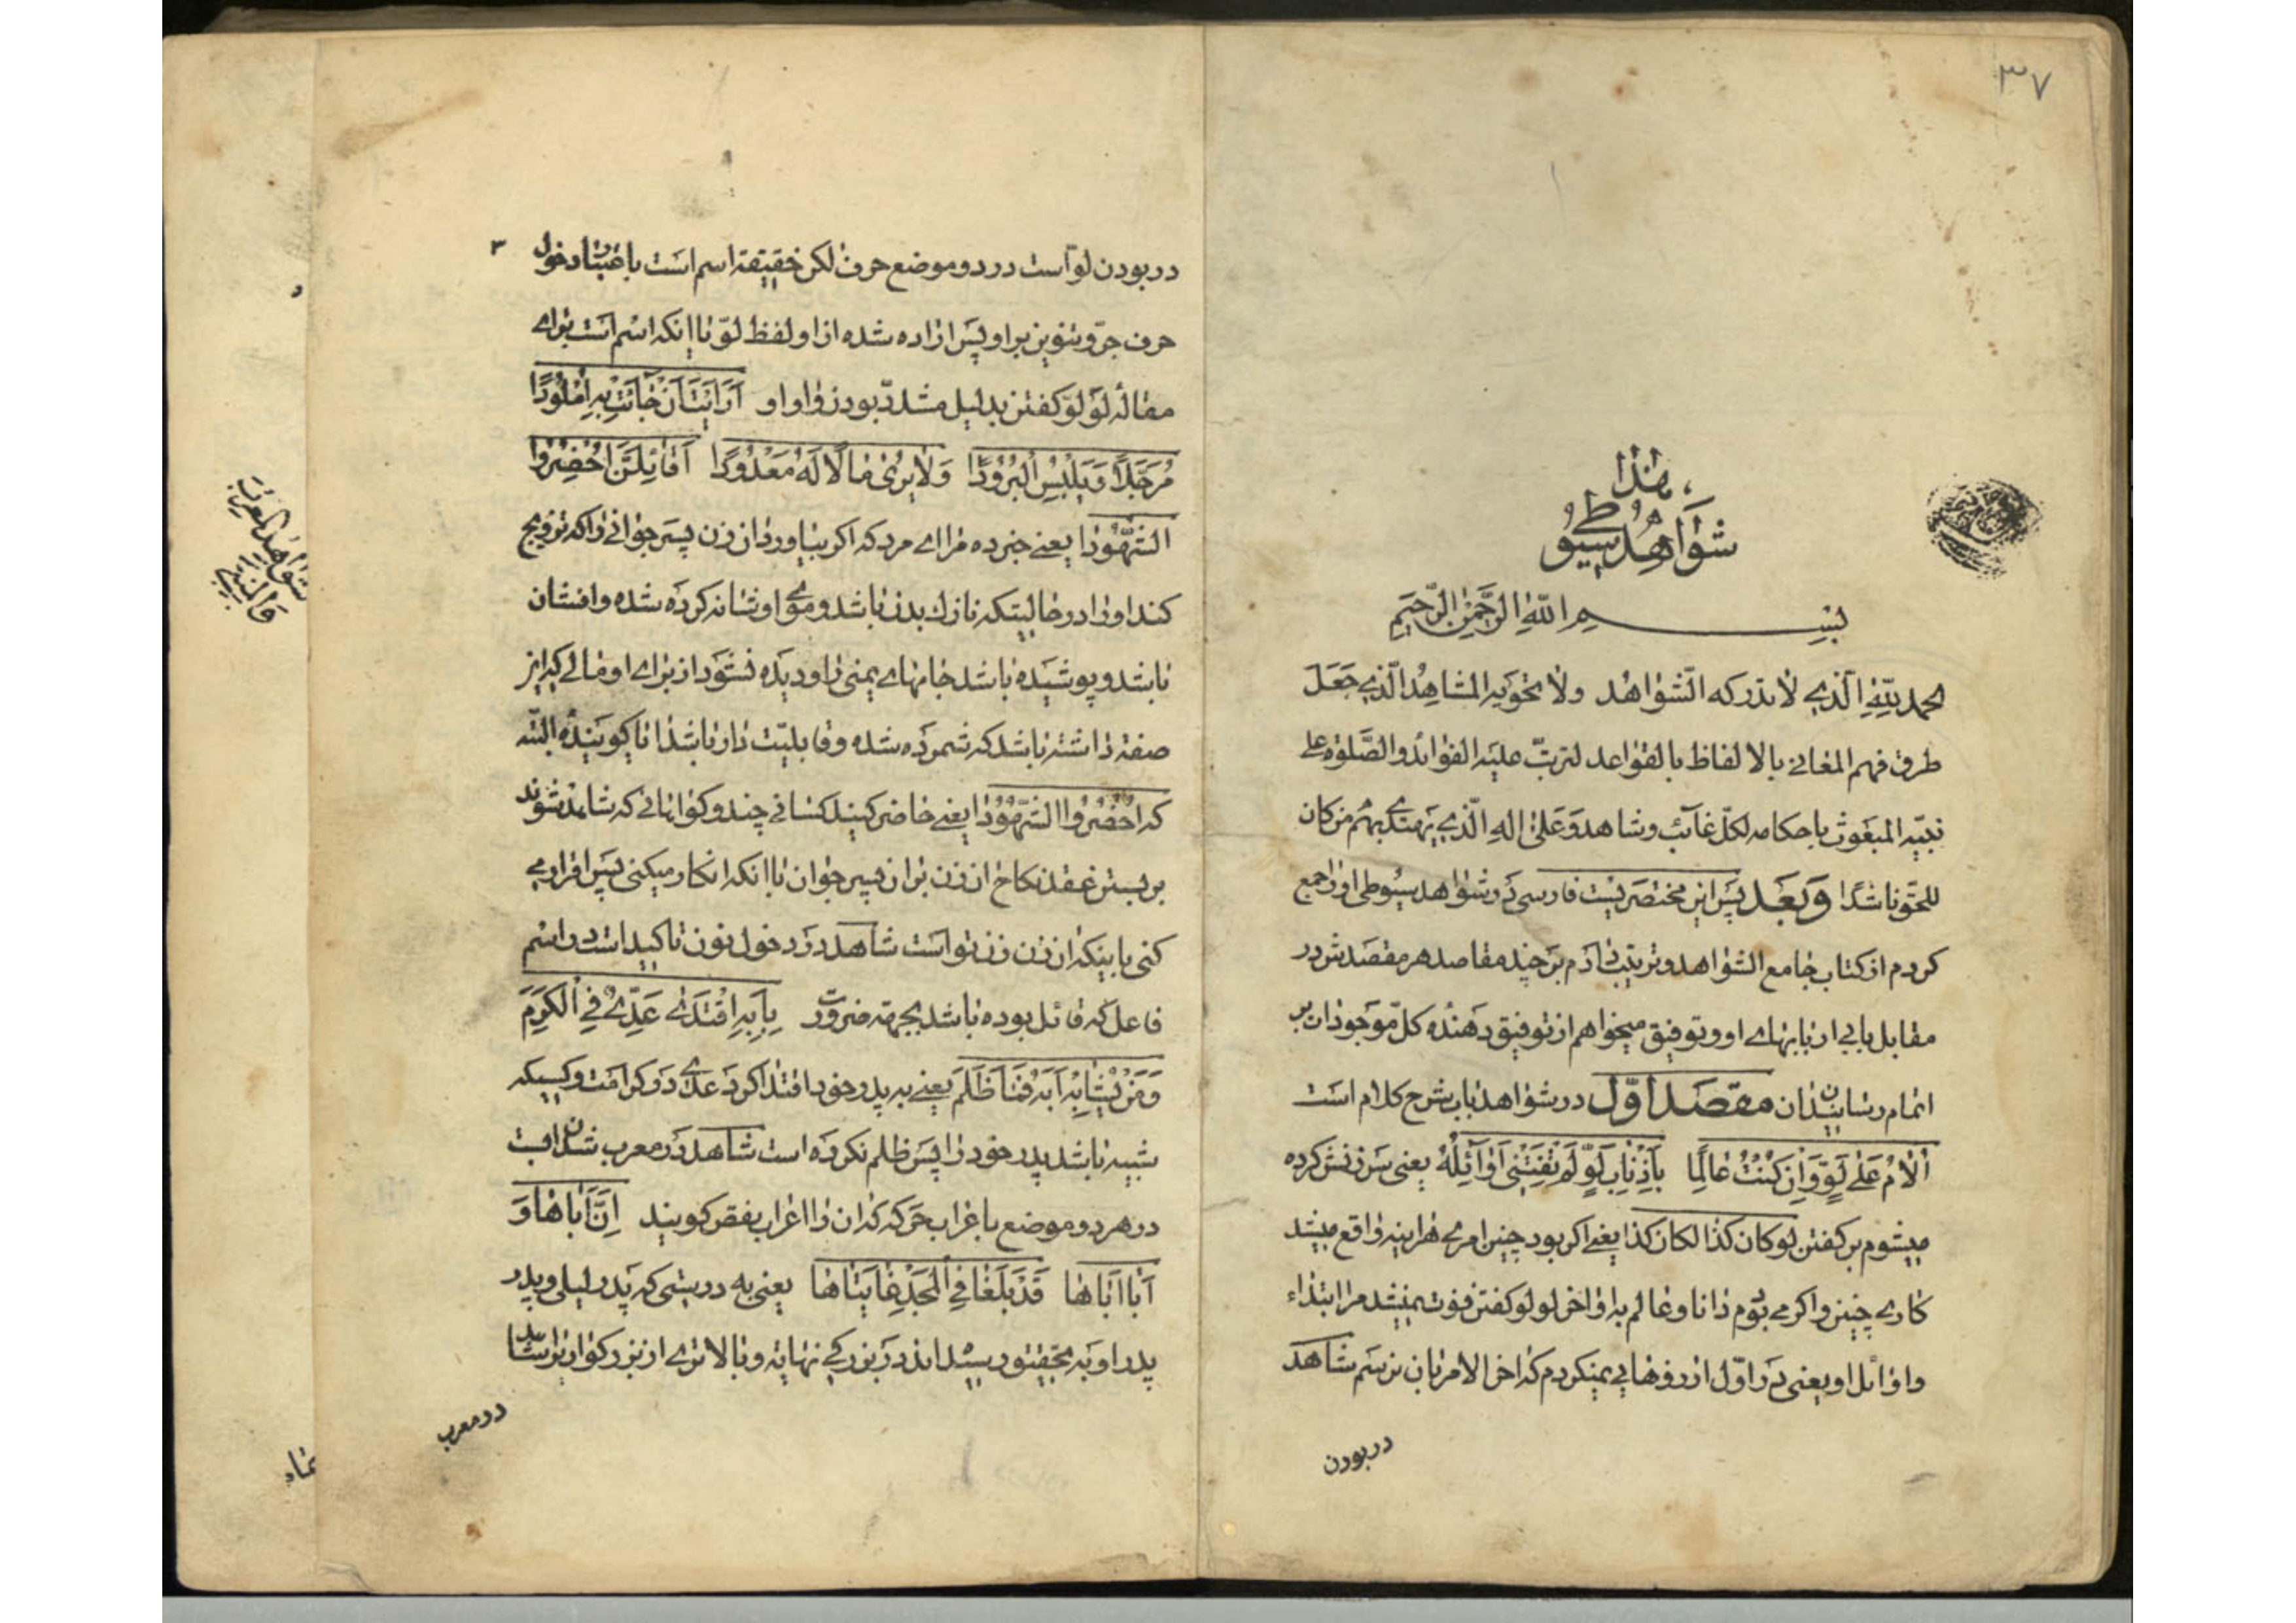 ۳۷
هذا
شواهد سیوطی
بِسْمِ اللّٰهِ الرَّحْمٰنِ الرَّحِیمِ
الحمد للّٰهِ الّذی لا تدرکه الشّواهد ولا تحویه المشاهد الّذی جَعَلَ
طرق فهم المعانی بالالفاظ بالقواعد لترتّب علیه الفوائد والصّلوة علی
نبیّه المبعوث باحکامه لکلّ غائب وشاهد وَعَلیٰ اله الّذی یهتدی بهم من کان
للحقّ ناشدًا وَبَعَد پَس این مختصریست فارسی در شواهد سیوطی او را جمع
کردم از کتاب جامع الشواهد و ترتیب دادم بر چند مقاصد هر مقصدش در
مقابل بابی از بابهای او و توفیق میخواهم از توفیق دهندۀ کلّ موجودات بر
اتمام رسانیدن ان مقصَد اوّل در شواهد باب شرح کلام است
اُلٰامُ عَلٰی لَوٍّ وَاِن کُنْتُ عٰالِمًا بِاَذْنٰابِ لَوٍّ لَمْ تَفُتْنِی اَوٰائِلُهُ یعنی سَرزنش کرده
میشوم بر کفتن لو کان کذا لکان کذا یعنی اکر بود چنین امری هراینه واقع میشد
کاری چنین و اکر می بودم دانا و عالم به اواخر لو لو کفتن فوت نمیشد مرا ابتداء
و اوائل او یعنی در اوّل ارزوهایی نمیکردم که اخر الامر بان نرسم شاهد
در بودن
در بودن لو است در دو موضع حرف لکن حقیقة اسم است باعتبار دخول
۳
حرف جرّ و تنوین بر او پس اراده شده از او لفظ لوّ با انکه اسم است برای
مقاله لَو لَو کفتن بدلیل مشدّد بودن واو او اَرَاَیْتَ اَنْ جٰائَتْ بِهِ اُمْلُودًا
مُرَجَّلًا وَیَلْبِسُ الْبُرُودًا وَلٰا یَریٰ مٰالًا لَهُ مَعْدُودًا اَقٰائِلُنَّ اَحْضِرُوا
الشُّهُودٰا یعنی خبر ده مرا ای مرد که اکر بیاورد ان زن پسر جوانی را که تزویج
کند او را در حالیتکه نازک بدن باشد و موی او شانه کرده شده و افشان
باشد و پوشیده باشد جامهای یمنی را و دیده نشود از برای او مالی که این
صفة داشته باشد که شمرده شده و قابلیّت دار باشد ایا کویندۀ البتّه
که احضروا الشهودا یعنی حاضر کنید کسانی چند و کواهانی که شاهد شوند
بر بستن عقد نکاح ان زن بران پسر جوان با انکه انکار میکنی پس اقرار می
کنی باینکه ان زن زن تو است شاهد در دخول نون تاکید است در اسم
فاعل که قائل بوده باشد بجهة ضرورت بِاَبِهِ اقْتَدیٰ عَدِّیٌ فِی الْکَرَمِ
وَمَنْ یُشٰابِهْ اَبَهُ فَمٰا ظَلَمَ یعنی به پدر خود اقتدا کرد عدی در کرامت و کسیکه
شبیه باشد پدر خود را پس ظلم نکرده است شاهد در معرب شدن اب
در هر دو موضع باعراب حرکه که ان را اعراب بنقص کویند اِنَّ اَبٰاهٰا وَ
اَبٰا اَبٰاهٰا قَدْ بَلَغٰا فِی الْمَجْدِ غٰایَتٰاهٰا یعنی به درستی که پدر لیلی و پدر
پدر او به تحقیق رسیده اند در بزرکی نهایة و بالاتری از بزرکواری را شاهد
در معرب
شواهد العربیة